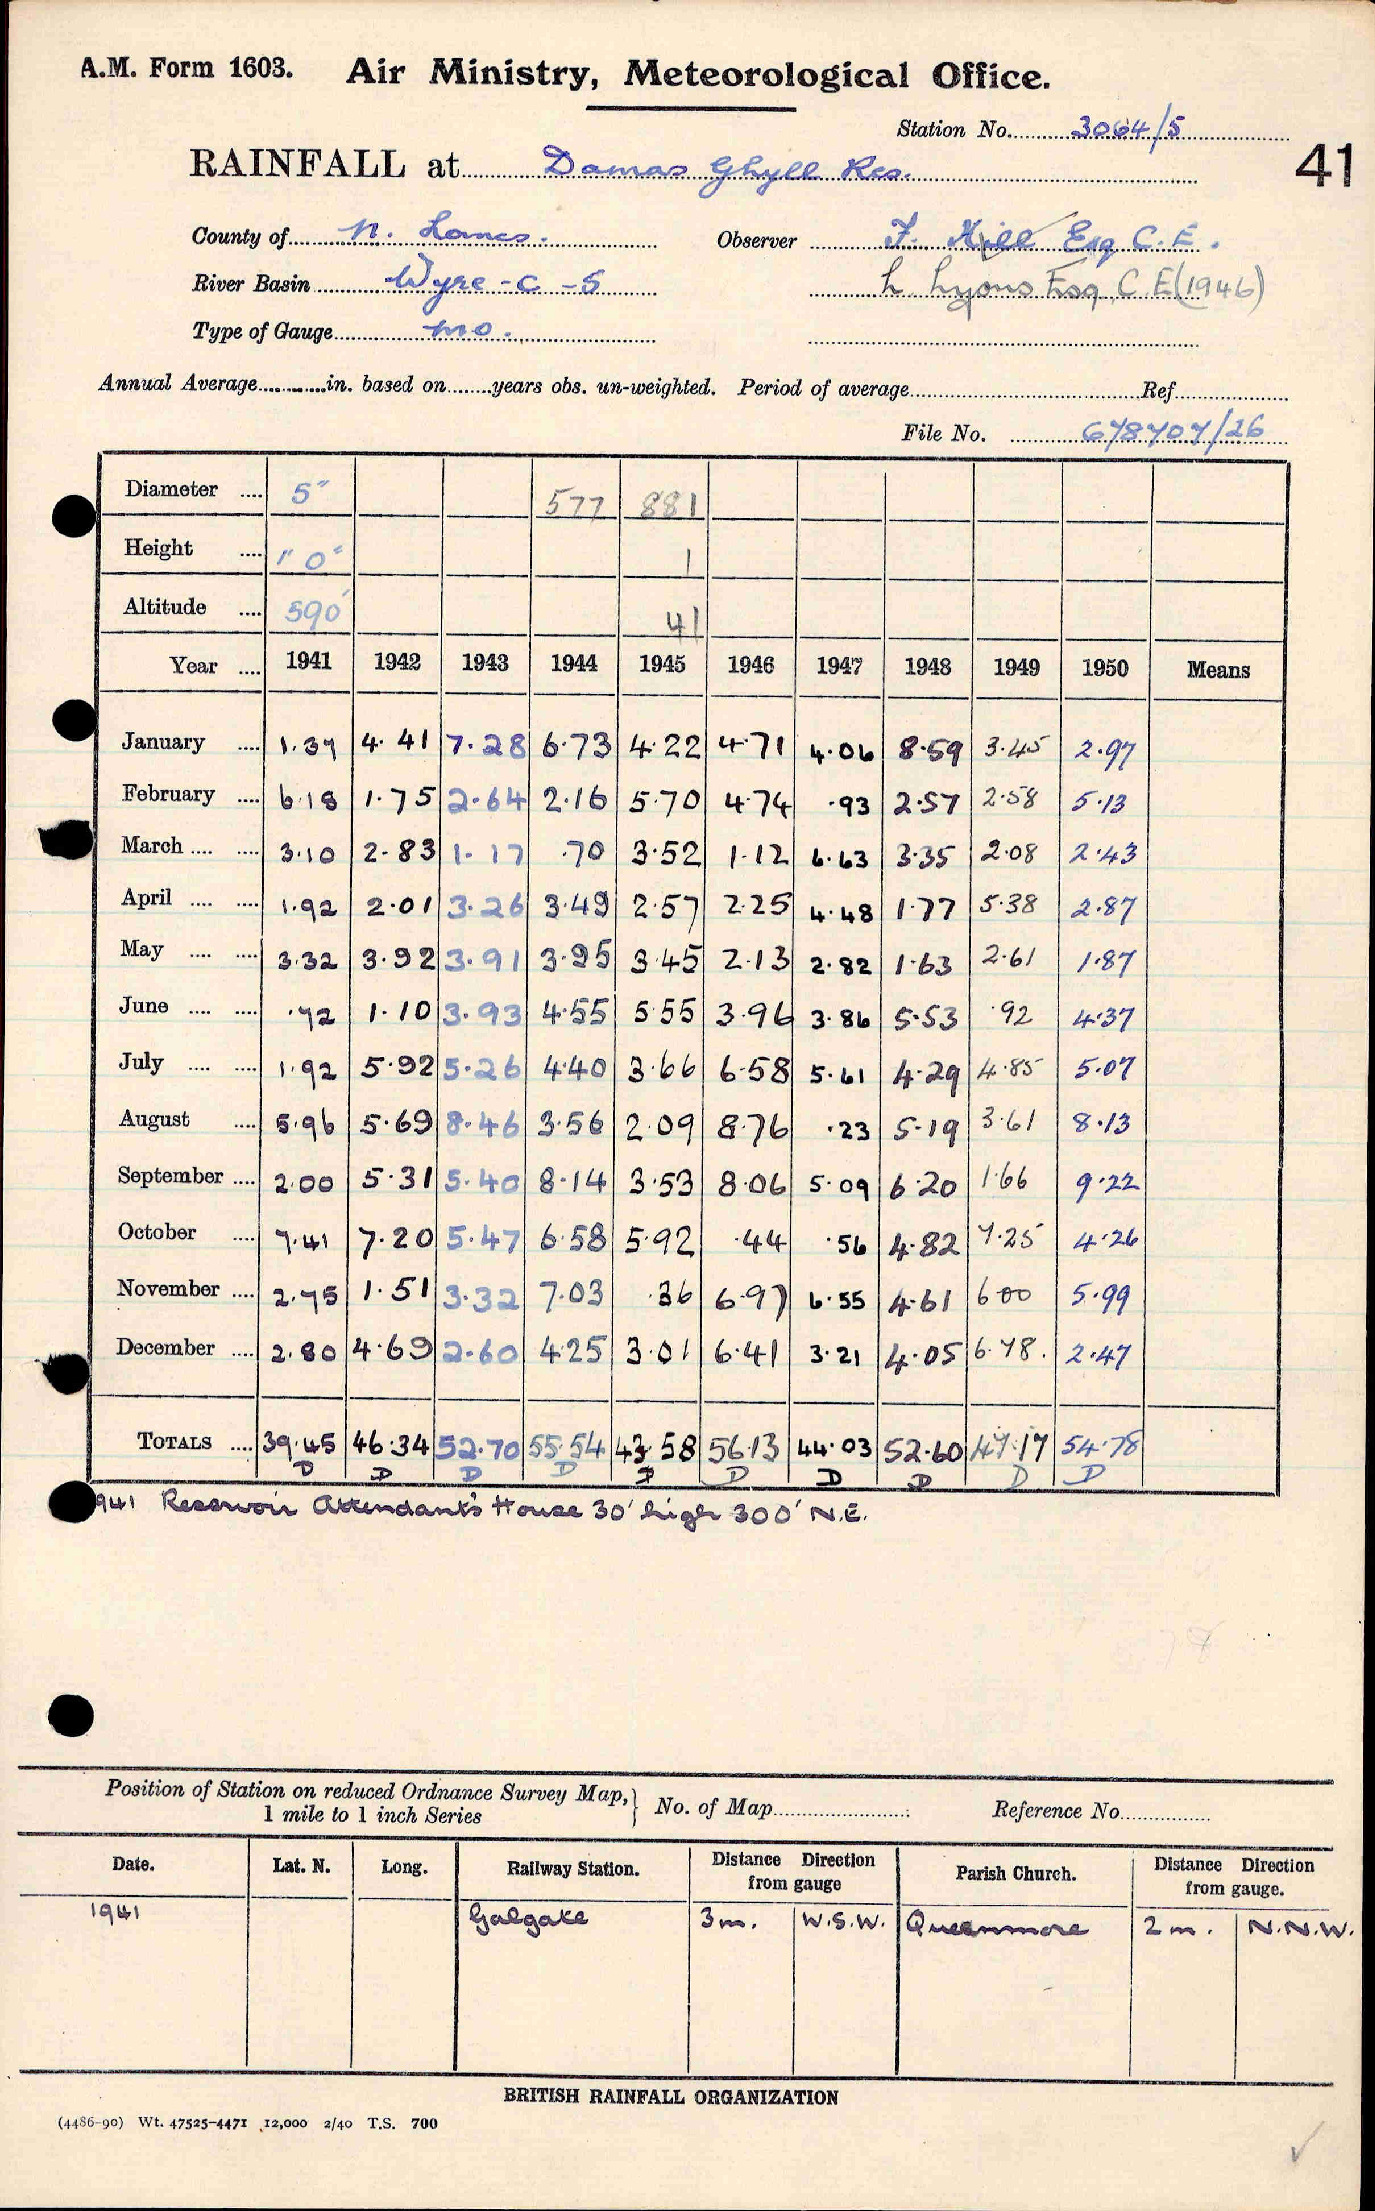 A.M. Form 1603. Air Ministry, Meteorological Office.
Station No. 3064/5
41
RAINFALL at Damas Ghyll Res.
County of N. Lancs. Observer F. Hill Esq C.E.
River Basin Wyre - C - S L Lyons Esq C E (1946)
Type of Gauge mo.
Annual Average in. based on years obs. un-weighted. Period of average Ref
File No. 678707/26
Diameter .... 5" 577 881
Height .... 1' 0" 1
Altitude .... 590' 41
Year .... 1941 1942 1943 1944 1945 1946 1947 1948 1949 1950 Means
January .... 1.37 4.41 7.28 6.73 4.22 4.71 4.06 8.59 3.45 2.97
February .... 6.18 1.75 2.64 2.16 5.70 4.74 .93 2.57 2.58 5.13
March .... .... 3.10 2.83 1.17 .70 3.52 1.12 6.63 3.35 2.08 2.43
April .... .... 1.92 2.01 3.26 3.49 2.57 2.25 4.48 1.77 5.38 2.87
May .... .... 3.32 3.92 3.91 3.95 3.45 2.13 2.82 1.63 2.61 1.87
June .... .... .72 1.10 3.93 4.55 5.55 3.96 3.86 5.53 .92 4.37
July .... .... 1.92 5.92 5.26 4.40 3.66 6.58 5.61 4.29 4.85 5.07
August .... 5.96 5.69 8.46 3.56 2.09 8.76 .23 5.19 3.61 8.13
September .... 2.00 5.31 5.40 8.14 3.53 8.06 5.09 6.20 1.66 9.22
October .... 7.41 7.20 5.47 6.58 5.92 .44 .56 4.82 7.25 4.26
November .... 2.75 1.51 3.32 7.03 .36 6.97 6.55 4.61 6.00 5.99
December .... 2.80 4.69 2.60 4.25 3.01 6.41 3.21 4.05 6.78. 2.47
TOTALS .... 39.45 46.34 52.70 55.54 43.58 56.13 44.03 52.60 47.17 54.78
D D D D D D D D D D
941 Reservoir Attendant's House 30' high 300' N.E.
Position of Station on reduced Ordnance Survey Map, 1 mile to 1 inch Series } No. of Map Reference No.
Date. Lat. N. Long. Railway Station. Distance Direction from gauge Parish Church. Distance Direction from gauge.
1941 Galgate 3 m. W.S.W. Queenmore 2 m. N.N.W.
BRITISH RAINFALL ORGANIZATION
(4486-90) Wt. 47525-4471 12,000 2/40 T.S. 700